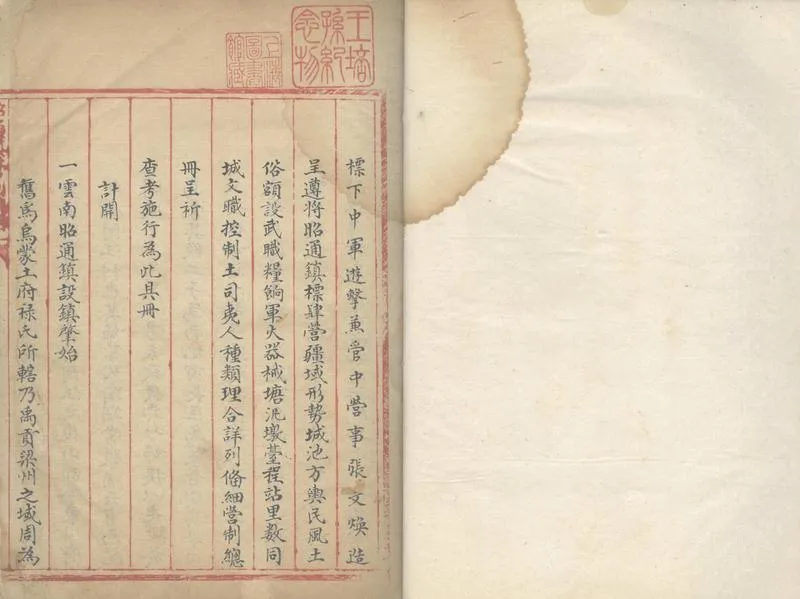 標下中軍遊擊兼管中營事張文煥造
呈遵將昭通鎮標肆營疆域形勢城池方輿民風土
俗額設武職糧餉軍火器械塘汛墩臺程站里数同
城文職控制土司夷人種類理合詳列俻細營制總
冊呈祈
查考施行為此具冊
計開
一雲南昭通鎮設鎮肇始
舊為烏蒙土府禄氏所轄乃禹貢梁州之域周為
王培
孫紀
念物
上海
圖書
館藏